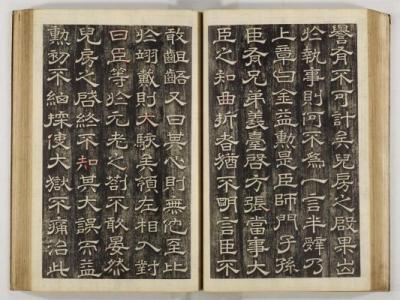 有不可計矣兒房之啓果出
於執事則何不爲一言半辭乃
上章曰金益勳是臣師門子孫
臣有兄弟義臺啓方張當事大
臣之知曲折者猶不明言臣不
敢齟齬又曰其心則無他至比
於翊戴則大駭矣領左相入對
曰臣等於元老之箚不敢晏然
兒房之啓終不知其大誤而益
勳初不細探使大獄不痛治此